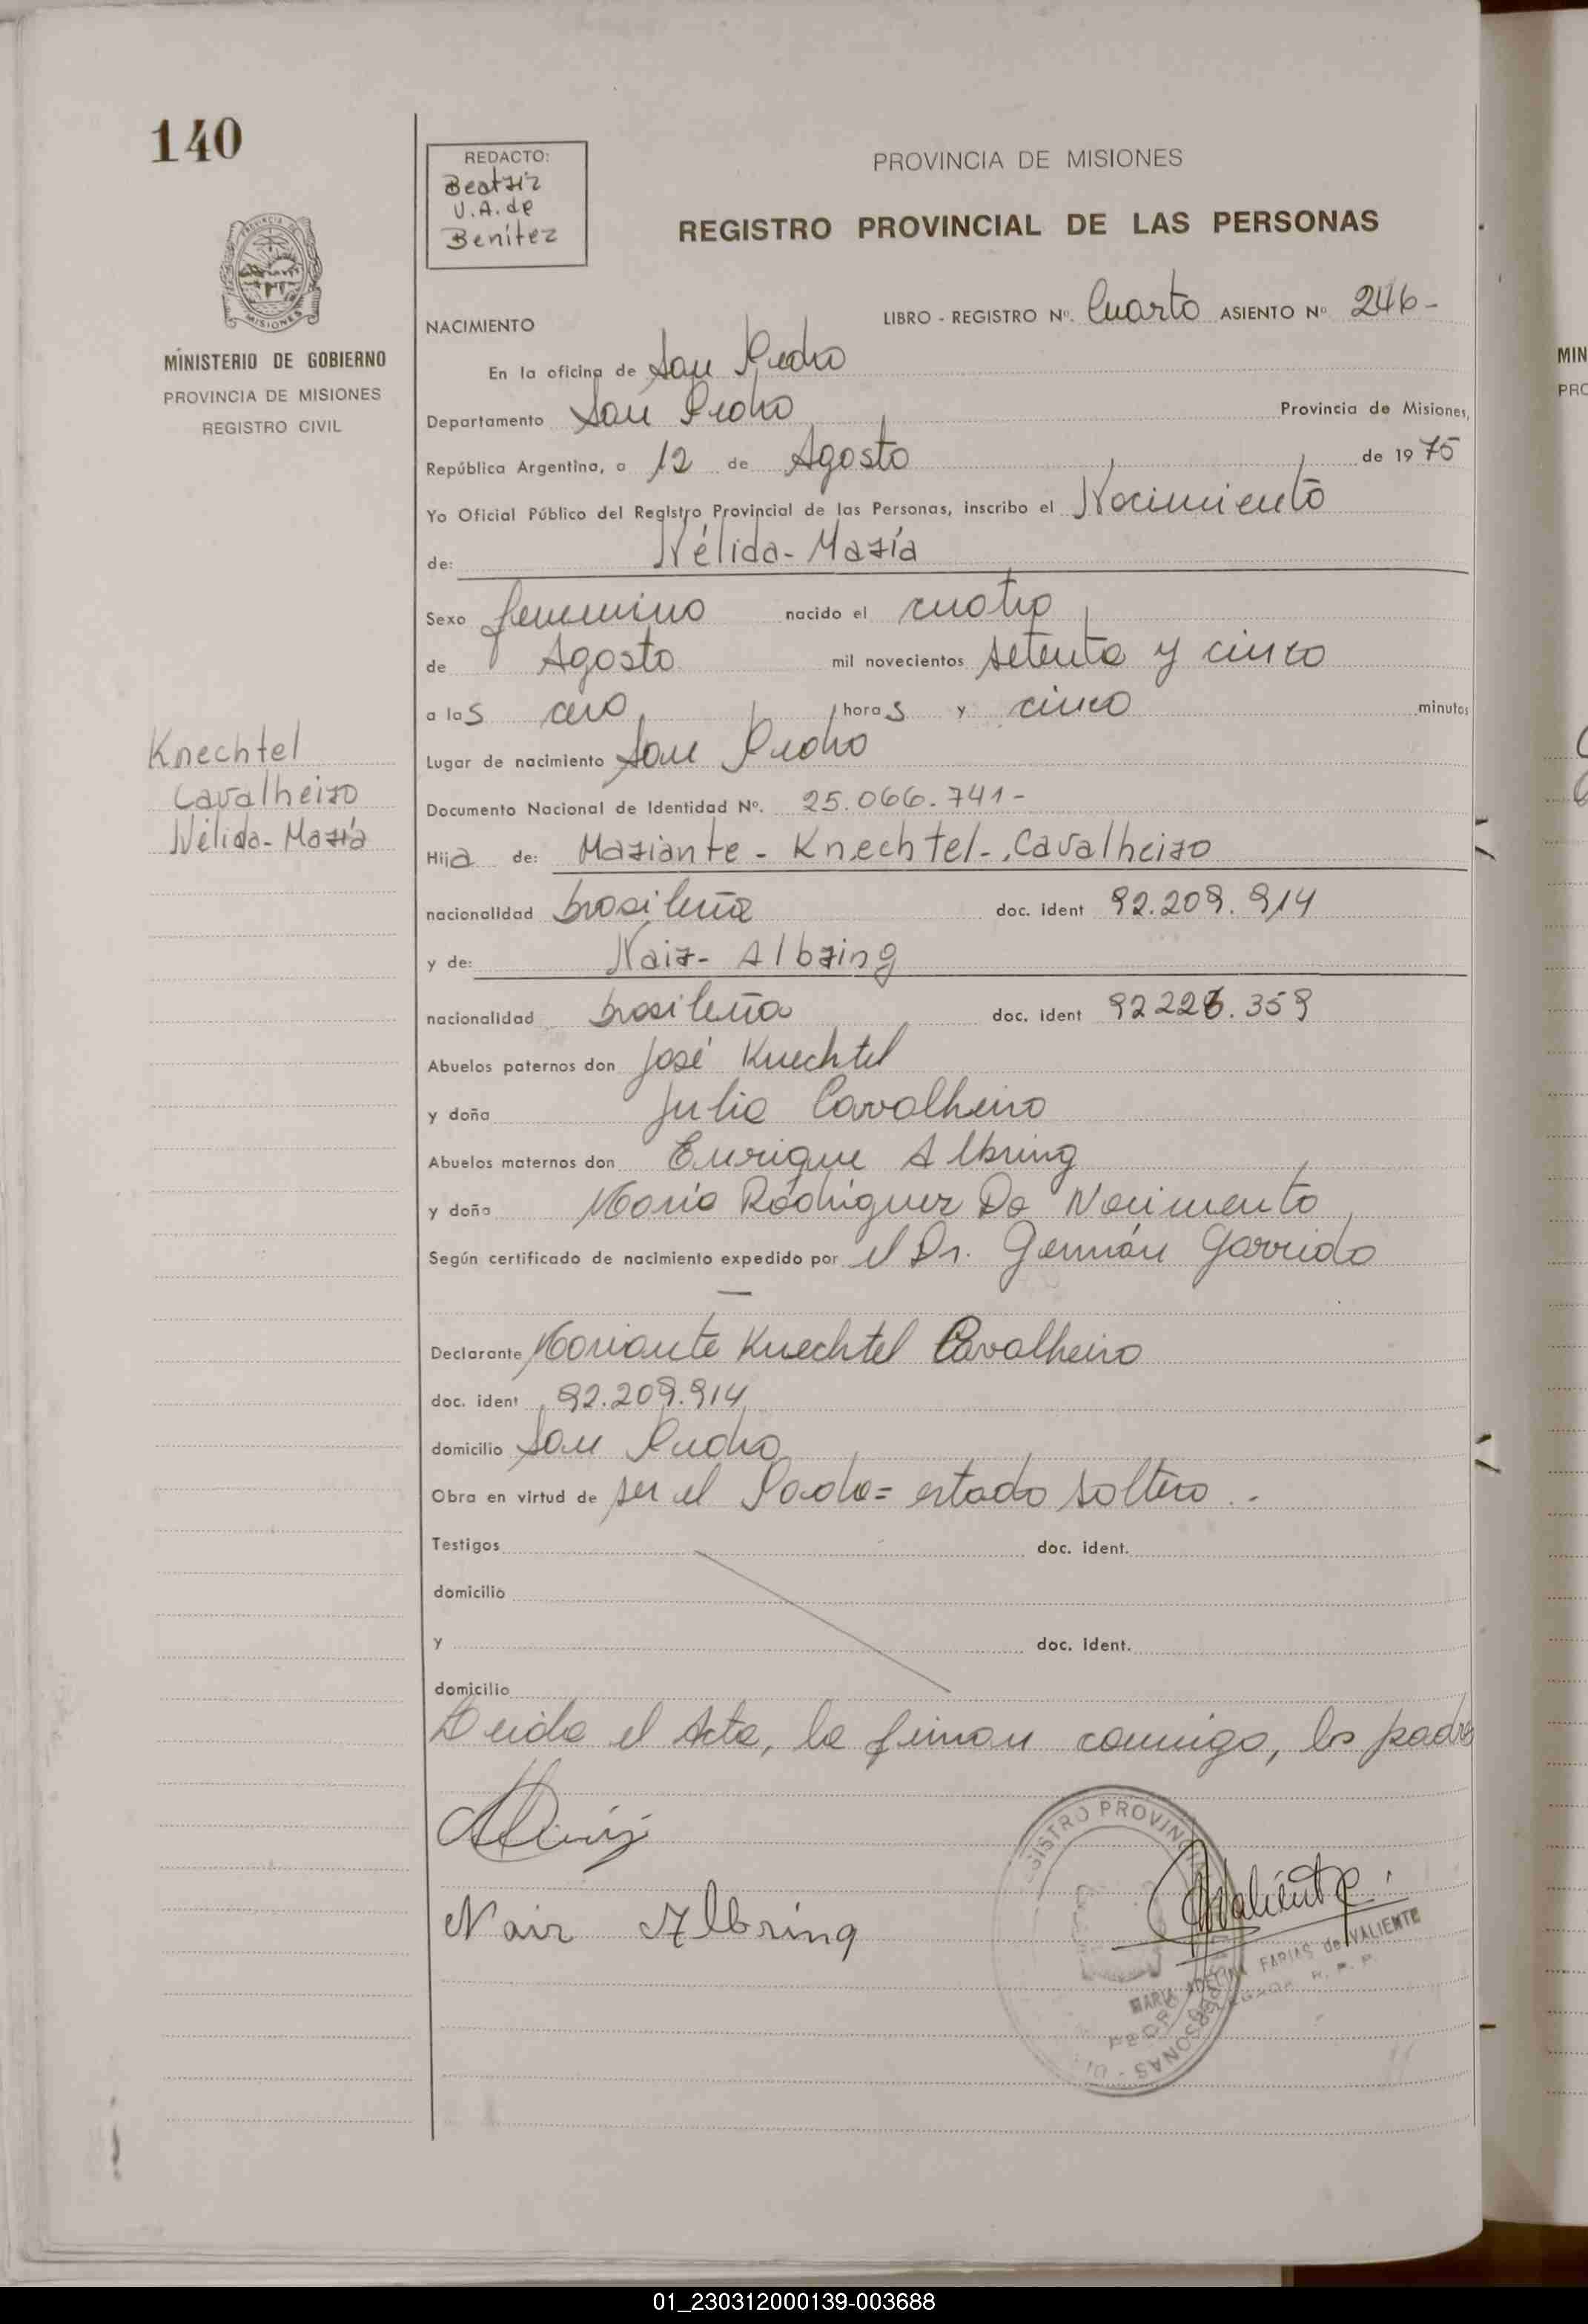 140
REDACTO:
Beatriz
V.A. de
Benítez
PROVINCIA DE MISIONES
REGISTRO PROVINCIAL DE LAS PERSONAS
MISIONES
MINISTERIO DE GOBIERNO
PROVINCIA DE MISIONES
REGISTRO CIVIL
NACIMIENTO
LIBRO - REGISTRO Nº. Cuarto ASIENTO Nº 246-
En la oficina de San Pedro
Departamento San Pedro Provincia de Misiones,
República Argentina, a 12 de Agosto de 1975
Yo Oficial Público del Registro Provincial de las Personas, inscribo el Nacimiento
de: Nélida-María
Sexo femenino nacido el cuatro
de Agosto mil novecientos setenta y cinco
a las cero horas y cinco minutos
Lugar de nacimiento San Pedro
Knechtel
Cavalheiro
Nélida-María
Documento Nacional de Identidad Nº. 25.066.741-
Hija de: Mariante - Knechtel - Cavalheiro
nacionalidad brasileña doc. ident 92.209.914
y de: Nair - Albring
nacionalidad brasileña doc. ident 92 226.359
Abuelos paternos don José Knechtel
y doña Julia Cavalheiro
Abuelos maternos don Enrique Albring
y doña María Rodriguez Do Nacimento
Según certificado de nacimiento expedido por el Dr. Germán Garrido
Declarante Mariante Knechtel Cavalheiro
doc. ident 92.209.914
domicilio San Pedro
Obra en virtud de ser el Padre = estado soltero.-
Testigos doc. ident.
domicilio
y doc. ident.
domicilio
Leída el Acta, la firman conmigo, los padres
Nair Albring
REGISTRO PROVINCIAL PERSONAS
Valiente
MARIA ADELINA FARIAS de VALIENTE
R. P. P.
MIN
PRO
01_230312000139-003688